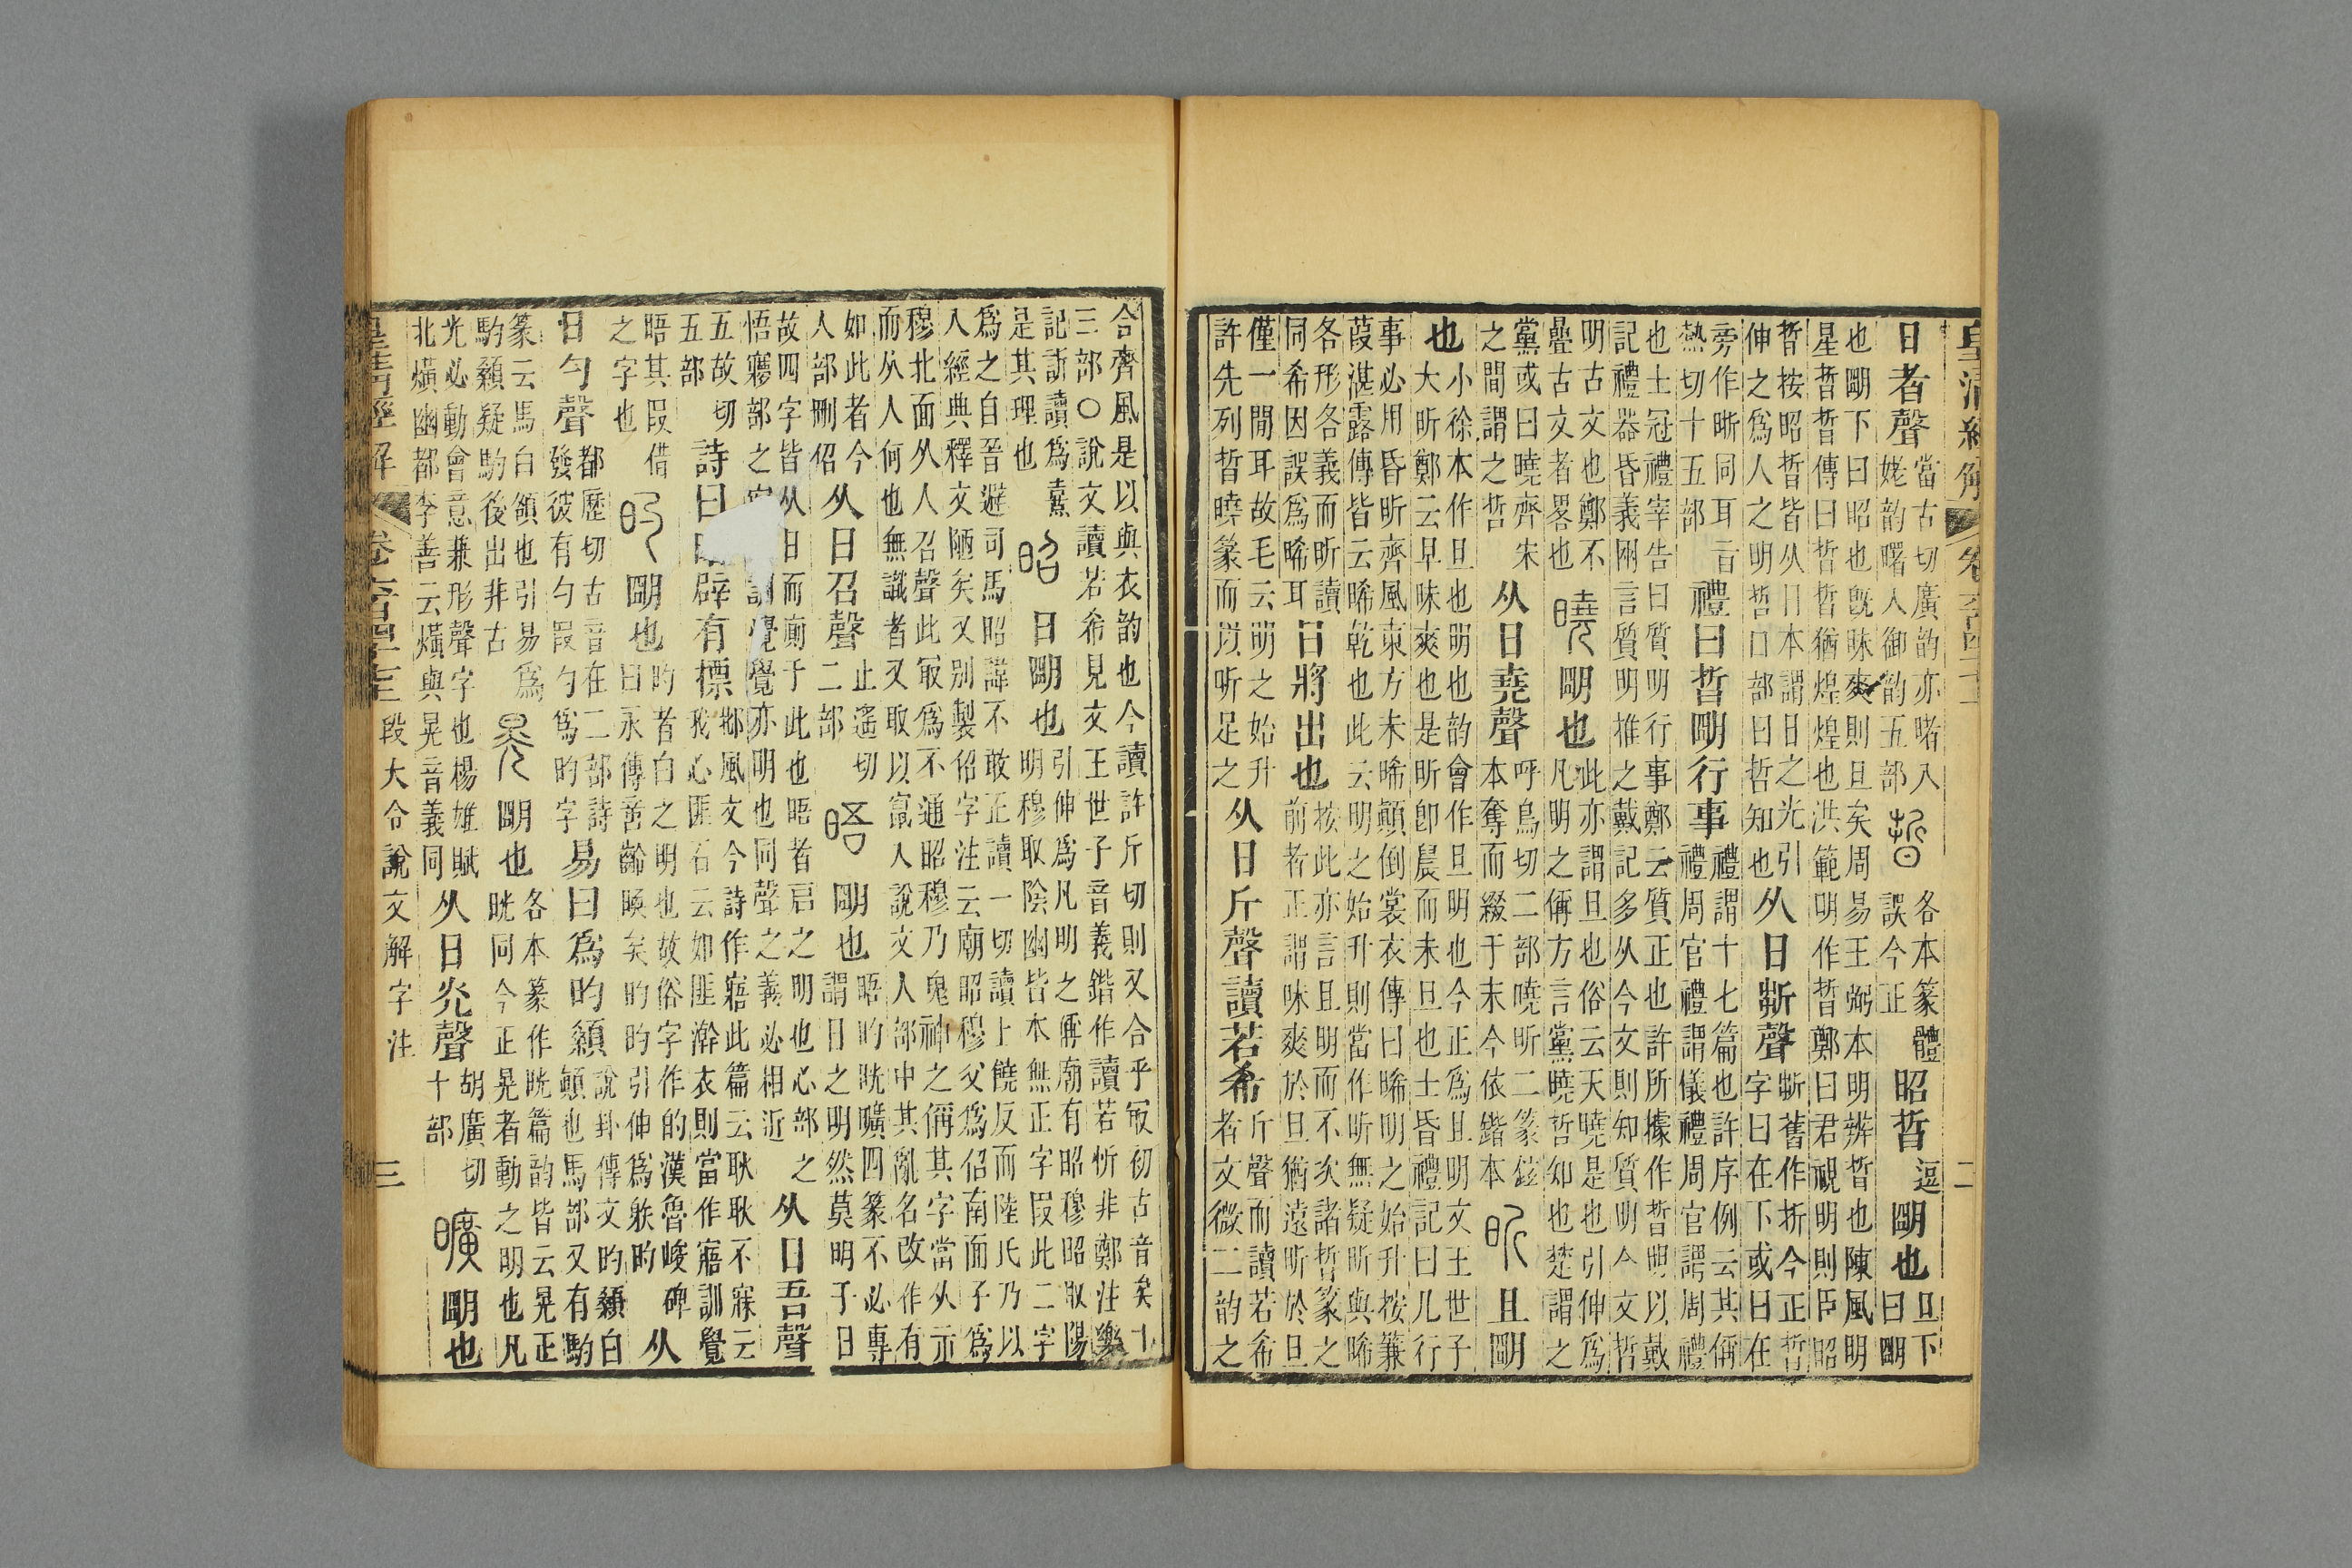 皇清經解
二
日者聲
當古切廣韵亦睹入
姥韵曙入御韵五部
晢
各本篆體
誤今正
昭晢
逗
朙也
旦下
曰朙
也朙下曰昭也旣昧爽則旦矣周易王弼本明辨晢也陳風明
星晢晢傳曰晢晢猶煌煌也洪範明作晢鄭曰君視明則臣昭
晢按昭晢皆从日本謂日之光引
伸之爲人之明哲口部曰哲知也
从日𣂚聲
𣂚舊作折今正晢
字日在下或日在
旁作晣同耳音
熱切十五部
禮曰晢朙行事
禮謂十七篇也許序例云其偁
禮周官禮謂儀禮禮周官謂周禮
也士冠禮宰告曰質明行事鄭云質正也許所據作晢明以戴
記禮器昏義刚言質明推之戴記多从今文則知質明今文晢
明古文也鄭不
疊古文者畧也
曉
朙也
此亦謂旦也俗云天曉是也引伸爲
凡明之偁方言黨曉哲知也楚謂之
黨或曰曉齊宋
之間謂之哲
从日堯聲
呼鳥切二部曉昕二篆鉉
本奪而綴于末今依鍇本
昕
旦朙
也
小徐本作旦也明也韵會作旦明也今正爲旦明文王世子
大昕鄭云早昧爽也是昕卽晨而未旦也士昏禮記曰凡行
事必用昏昕齊風東方未晞顚倒裳衣傳曰晞明之始升按蒹
葭湛露傳皆云晞乾也此云明之始升則當作昕無疑昕與晞
各形各義而昕讀
同希因誤爲晞耳
日將出也
按此亦言旦明而不次諸晢篆之
前者正謂昧爽於旦猶遠昕於旦
僅一閒耳故毛云明之始升
許先列晢曉篆而㠯昕足之
从日斤聲讀若希
斤聲而讀若希
者文微二韵之
合齊風是以與衣韵也今讀許斤切則又合乎冣初古音矣十
三部○說文讀若希見文王世子音義鍇作讀若忻非鄭注樂
記訢讀爲熹
是其理也
昭
日朙也
引伸爲凡明之偁廟有昭穆昭取陽
明穆取陰幽皆本無正字叚此二字
爲之自晉避司馬昭諱不敢正讀一切讀上饒反而陸氏乃以
人經典釋文陋矣又別製佋字注云廟昭穆父爲佋南面子爲
穆北面从人召聲此冣爲不通昭穆乃鬼神之偁其字當从示
而从人何也無識者又取以竄人說文人部中其亂名改作有
如此者今
人部刪佋
从日召聲
止遙切
二部
晤
朙也
晤旳晄曠四篆不必專
謂日之明然莫明于日
故四字皆从日而廁于此也晤者启之明也心部之
悟㝱部之訓覺覺亦明也同聲之義必相近
从日吾聲
五故切
五部
詩曰辟有摽
邶風文今詩作寤此篇云耿耿不寐云
我心匪石云如匪澣衣則當作寤訓覺
晤其叚借
之字也
旳
朙也
旳者白之明也故俗字作的漢魯峻碑
曰永傳啻齡矣旳旳引伸爲躲旳
从
日勺聲
都歷切古音在二部詩
發彼有勺叚勺爲旳字
易曰爲旳顙
說卦傳文旳顙白
顚也馬部又有馰
篆云馬白頟也引易爲
馰顙疑馰後出非古
晃
朙也
各本篆作晄篇韵皆云晃正
晄同今正晃者動之明也凡
光必動會意兼形聲字也楊雄賦
北爌幽都李善云爌與晃音義同
从日光聲
胡廣切
十部
曠
朙也
段大令說文解字注
三